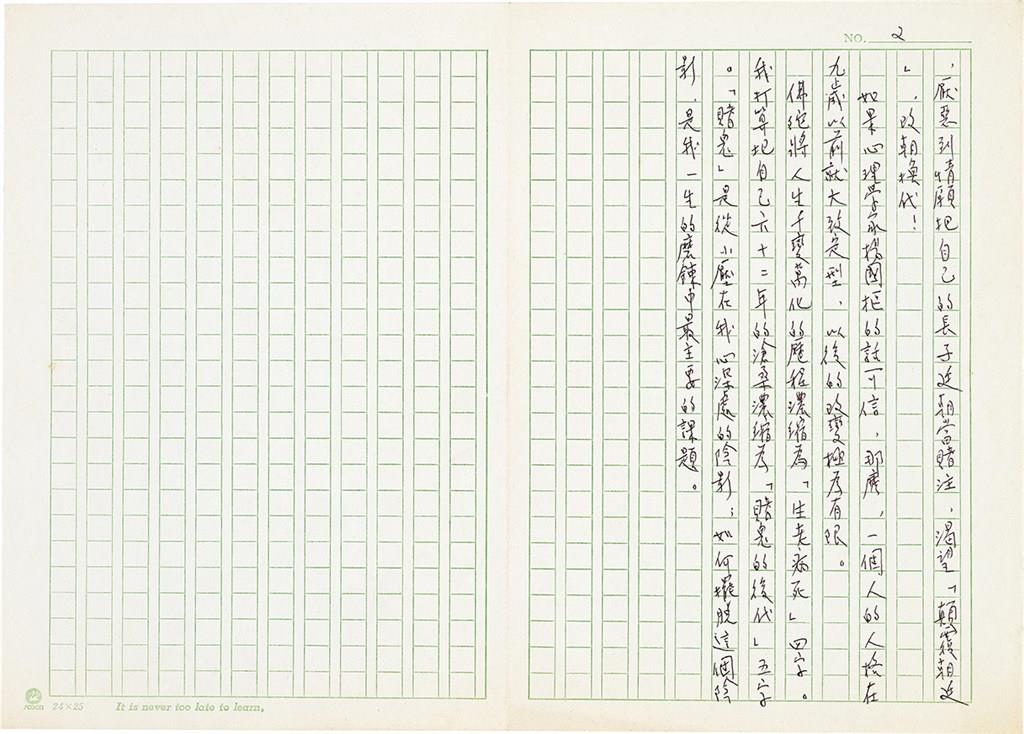 NO. 2
，厭惡到情願把自己的長子延朝當賭注，渴望「顛覆朝廷
」，改朝換代！
如果心理學家楊國樞的話可信，那麼，一個人的人格在
九歲以前就大致定型，以後的改變極為有限。
佛陀將人生千變萬化的歷程濃縮為「生老病死」四字。
我打算把自己六十二年的滄桑濃縮為「賭鬼的後代」五字
。「賭鬼」是從小壓在我心深處的陰影；如何擺脫這個陰
影，是我一生的磨鍊中最主要的課題。
24×25 It is never too late to learn,